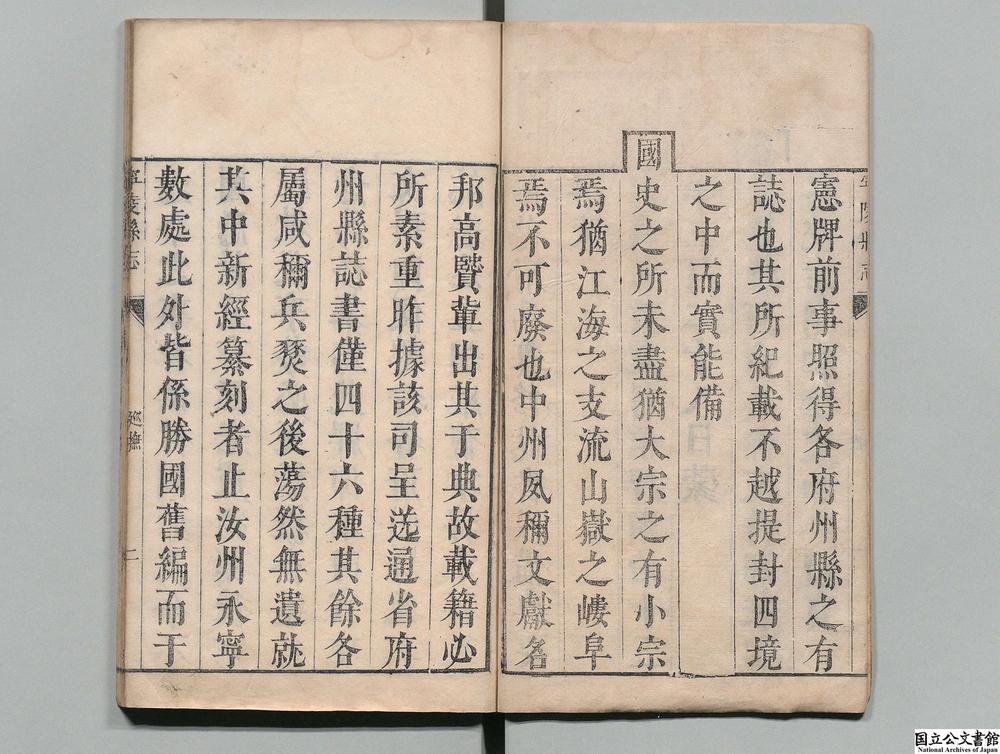 憲牌前事照得各府州縣之有
誌也其所紀載不越提封四境
之中而實能備
國
史之所未盡猶大宗之有小宗
焉猶江海之支流山嶽之嶁阜
焉不可廢也中州夙稱文獻名
邦高賢輩出其于典故載籍必
所素重昨據該司呈送通省府
州縣誌書僅四十六種其餘各
屬咸稱兵燹之後蕩然無遺就
其中新經纂刻者止汝州永寧
數處此外皆係勝國舊編而于
寧陵縣志
巡撫
二
国立公文書館
National Archives of Japan